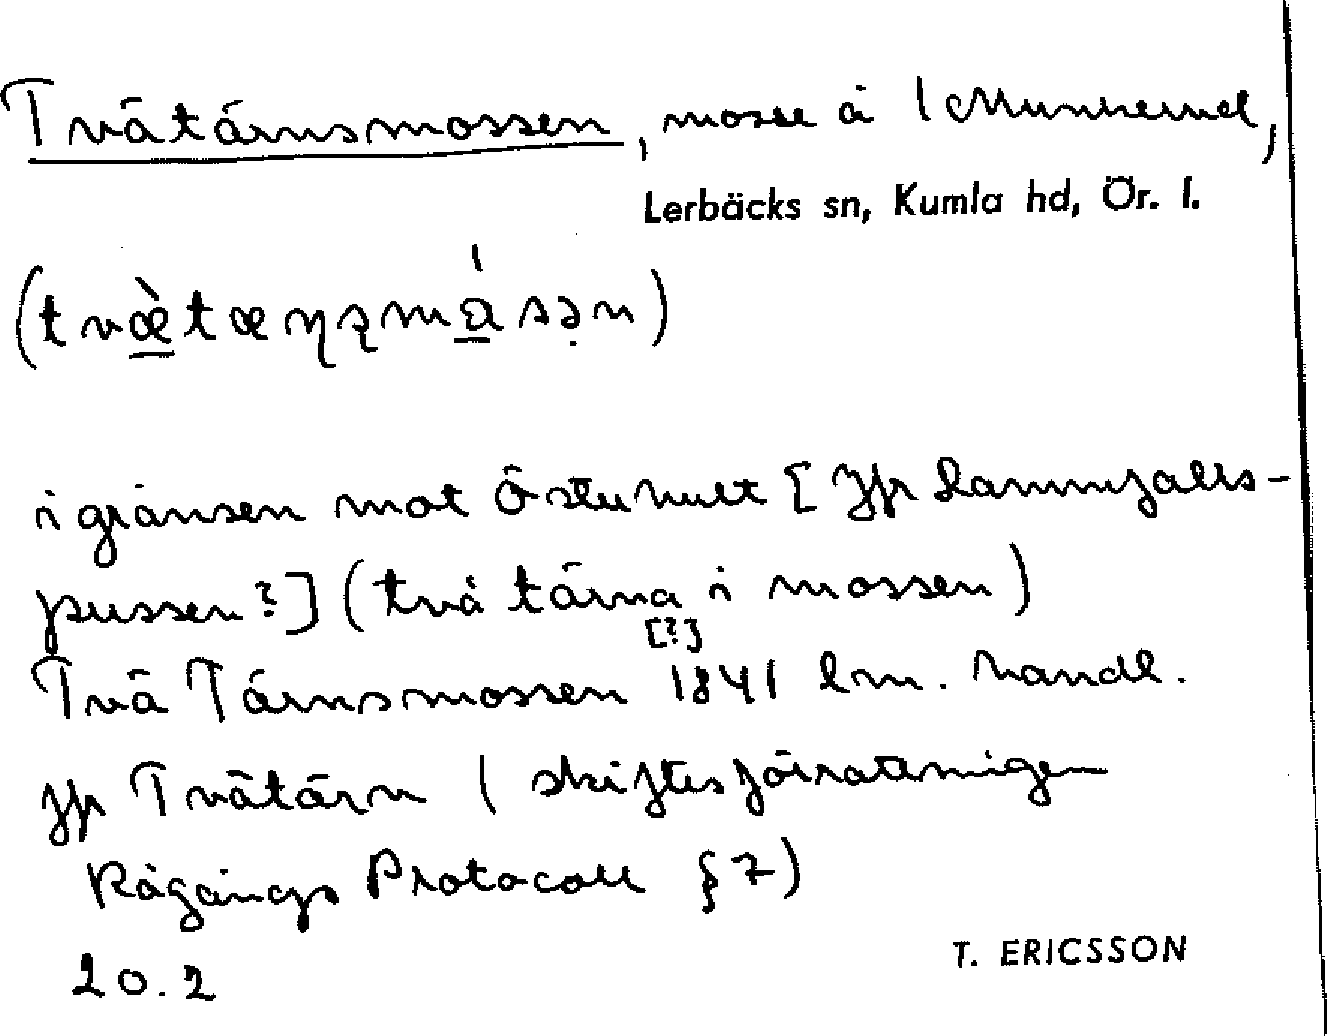 Tvätärnsmossen, mosse å 1 Munkerud,
Lerbäcks sn, Kumla hd, Ör. l.
(tvæ̀tæɳʂmásən)
i gränsen mot Östuhult [Jfr Lammfalls-
pussen?] (två tärna i mossen)
[?]
Två Tärnsmossen 1841 lm. handl.
Jfr Tvätärn (skiftesförrattningen
Rågångs Protocoll § 7)
20.2
T. ERICSSON